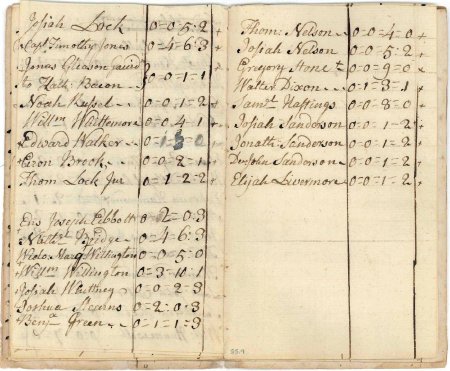 Josiah Lock 0=0=5:2 +
Capt Timothy Jones 0=4=6:3 +
Jonas Gleason paid
to Nath: Bacon 0=0=1=1
Noah Russel 0=0:1=2 +
Willm Whittemore 0=0:4:1 +
Edward Walker 0=1:3=0
Eron Brook 0=0=2=1 +
Thom Lock Jur 0=1=2=2 +
Ens Joseph 0=2=0:3
Bridge 0=4=6:3
Widow Withington 0=0=5:0
+ Willm Wellington 0=3=10:1
Josiah Whittney 0=0=2=3
Joshua Stearns 0=2:0:3
Benja Green 0=1=1:3
Thom: Nelson 0=0=4=0 +
Josiah Nelson 0=0=5:2 +
Gregory Stone 0=0=9=0 ×
Walter Dixon 0=1=3=1 +
Samll Hastings 0=0=8=0 +
Josiah Sanderson 0=0=1=2 +
Jonath Sanderson 0=0=1=2 +
John Sanderson 0=0=1=2 +
Elijah Livermore 0=0=1=2 +